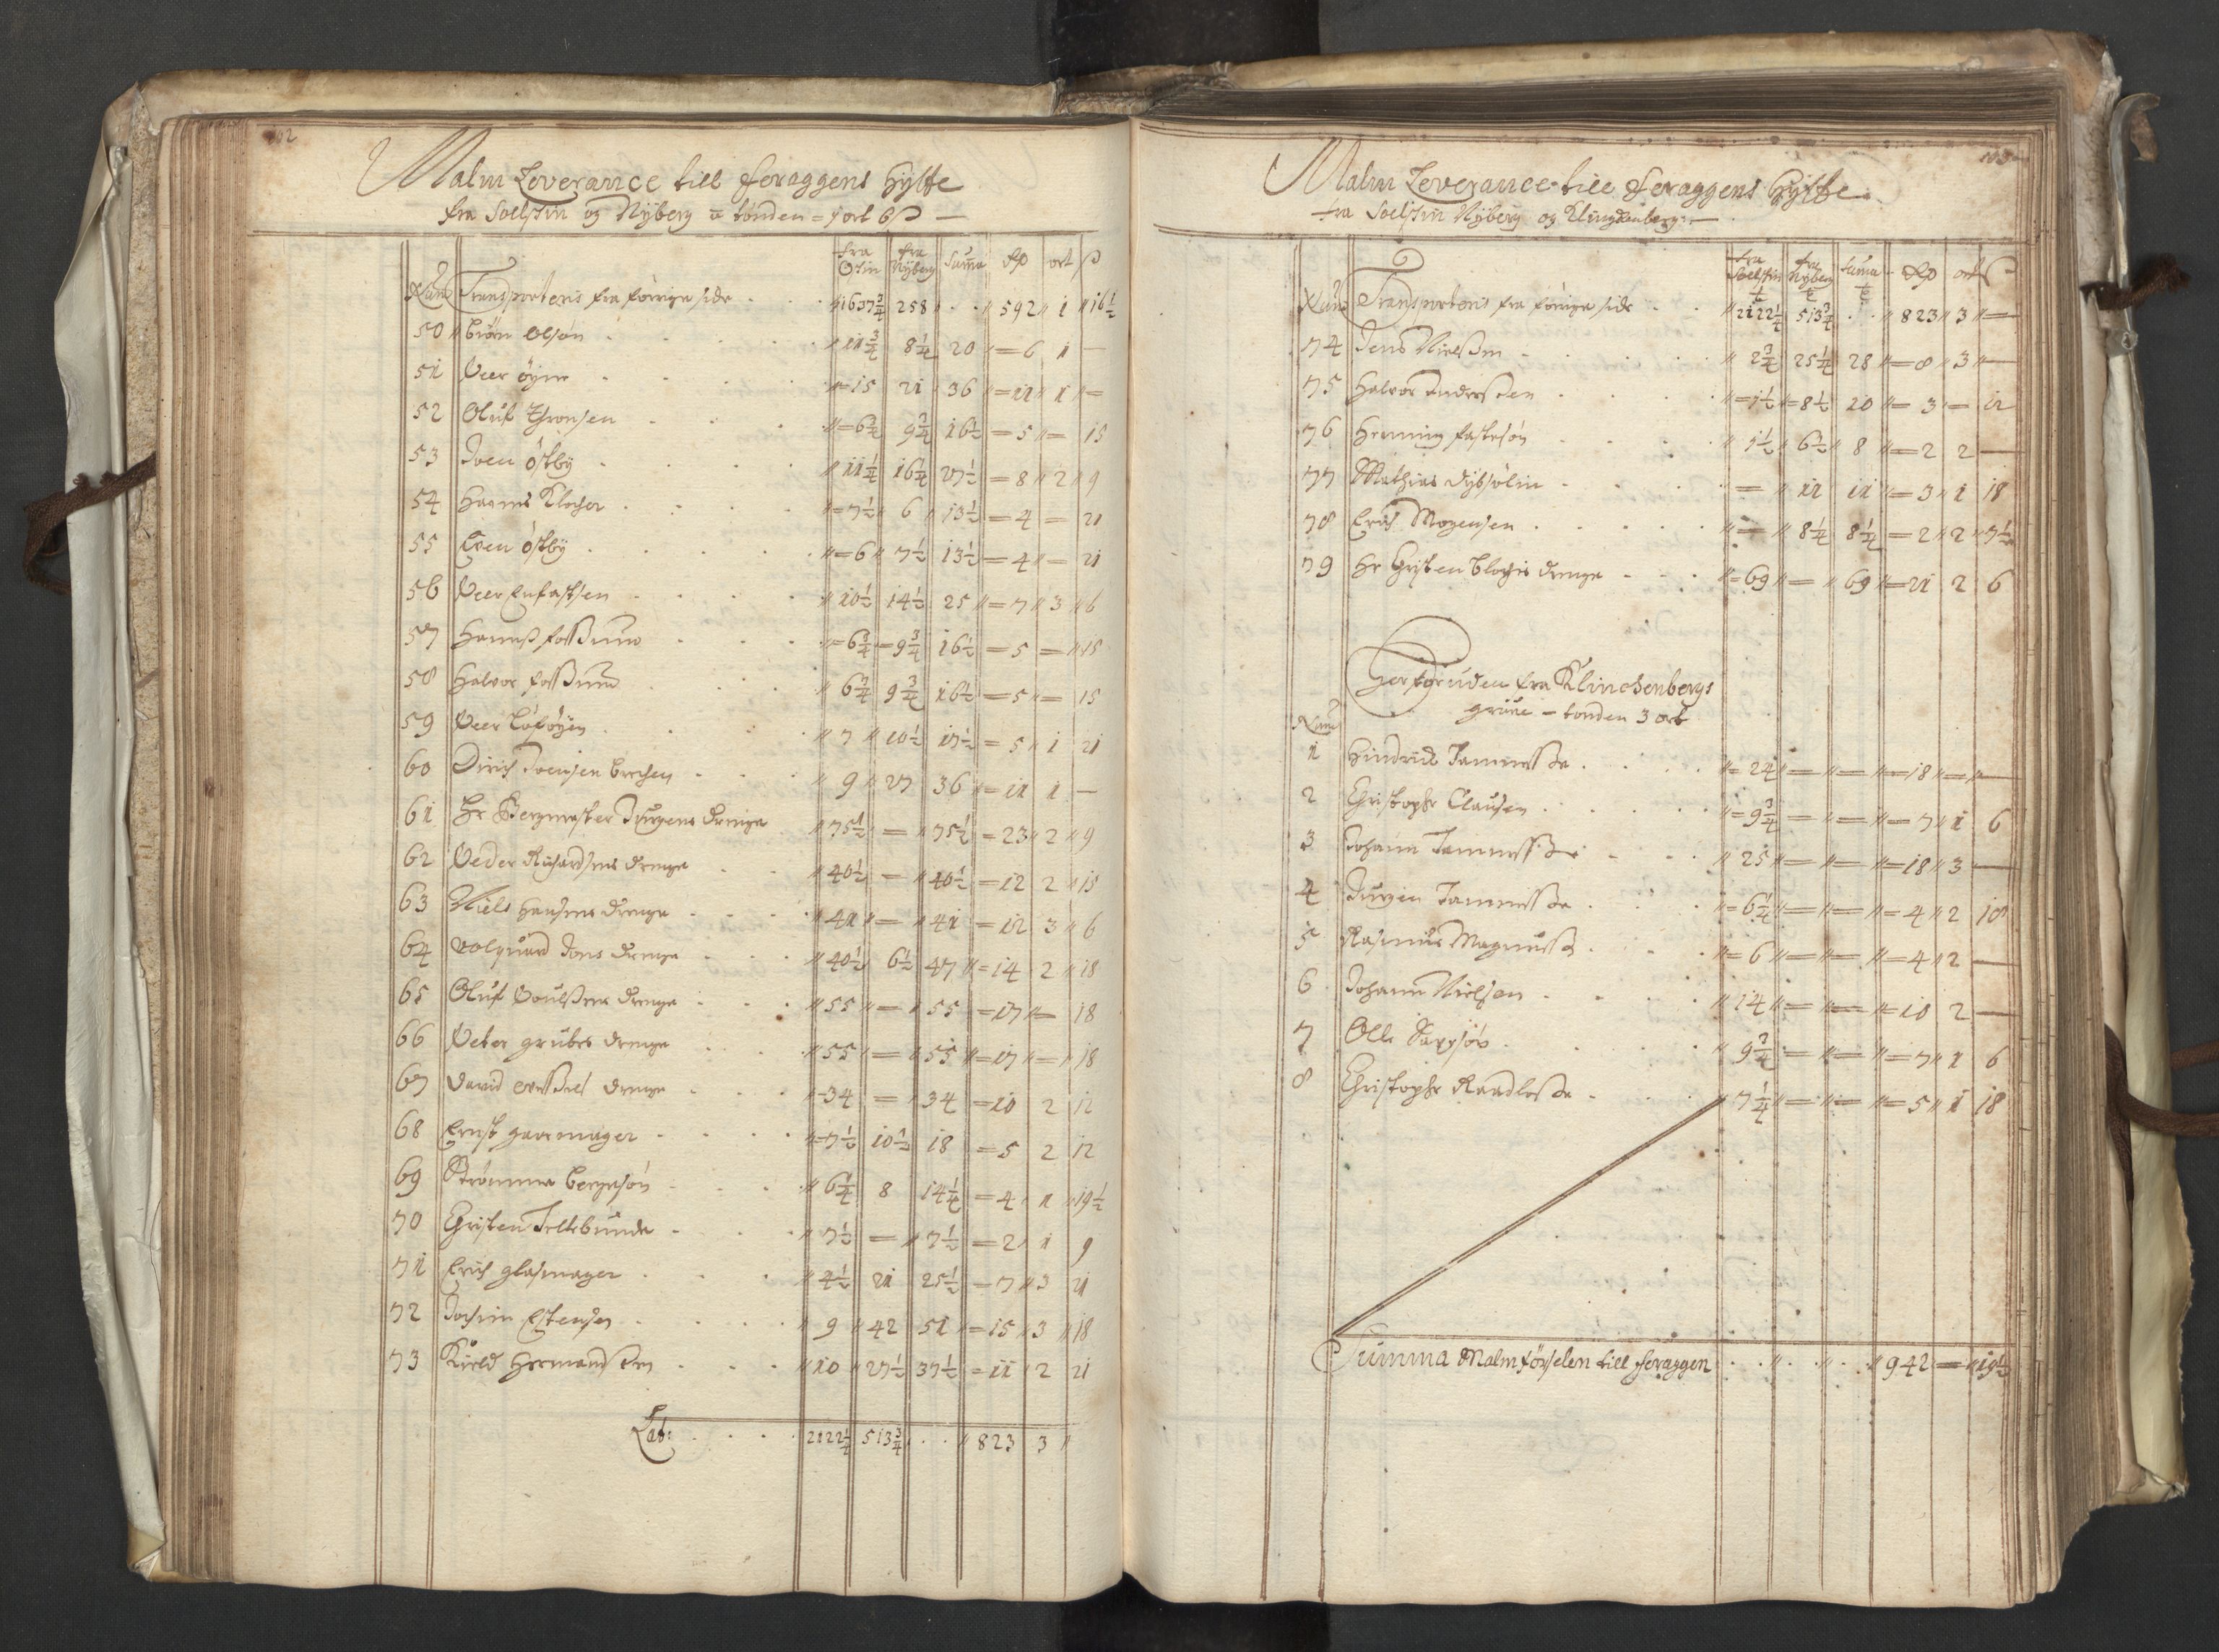 102
Malm Leverance till Feraggens Hÿtte
fra Soelstin og Nÿberg a tönden = 1 ort 6 ß —
fra Ostin fra Nÿberg Suma Rdr ort ß
Num Transporteris fra forrige side 1637 3/4 258 592 1 16 1/2
50 Biörn Olsön 11 3/4 8 1/4 20 6 1 —
51 Peer öyne 15 21 36 11 1 —
52 Oluf Thronsen 6 3/4 9 3/4 16 1/2 5 — 15
53 Joen östbÿ 11 1/4 16 1/4 27 1/2 8 2 9
54 Hanns Klocher 7 1/2 6 13 1/2 4 — 21
55 Even östbÿ 6 7 1/2 13 1/2 4 — 21
56 Peer Enfastsen 10 1/2 14 1/2 25 7 3 6
57 Hanns foßum 6 3/4 9 3/4 16 1/2 5 — 15
58 Halvor foßum 6 3/4 9 3/4 16 1/2 5 — 15
59 Peer Löföÿen 7 10 1/2 17 1/2 5 1 21
60 Dirich Joensen 9 27 36 11 1 —
61 Hr Bergmester Jürgens drenge 75 1/2 — 75 1/2 23 2 9
62 Peder Richardsens drenge 40 1/2 — 40 1/2 12 2 15
63 Niels Hansens drenge 41 — 41 12 3 6
64 Volquard drenge 40 1/2 6 1/2 47 14 2 18
65 Oluf Poulßens drenge 55 — 55 17 — 18
66 Peter grübes drenge 55 — 55 17 — 18
67 David drenge 34 — 34 10 2 12
68 Ernst garemager 7 1/2 10 1/2 18 5 2 12
69 Strömme Bergesön 6 1/4 8 14 1/4 4 1 19 1/2
70 Christen Teltebunde 7 1/2 — 7 1/2 2 1 9
71 Erich glasmager 4 1/2 21 25 1/2 7 3 21
72 Jochim Estensen 9 42 51 15 3 18
73 Kield Hermandsen 10 27 1/2 37 1/2 11 2 21
Lat: 2122 1/4 513 3/4 823 3
103
Malm Leverance till Feraggens Hÿtte
fra Soelstin Nÿberg og Klingenberg —
fra Soelstin fra Nÿberg Suma Rdr ort ß
Num Transporteris fra forrige side 2122 1/4 513 3/4 823 3 —
74 Jens Nielßen 2 3/4 25 1/4 28 8 3 —
75 Halvor Anderßen 1 1/2 8 1/2 10 3 — 12
76 Henning fastesön 1 1/2 6 1/2 8 2 2 —
77 Mathias — 11 11 3 1 18
78 Erich Mogensen — 8 1/4 8 1/4 2 2 7 1/2
79 Hr Christen Blochs drenge 69 — 69 21 2 6
Her foruden fra Klinchenbergs
grüve — tonden 3 ort
Num
1 Hindrich Tammeße 24 — — 18 — —
2 Christopher Clausen 9 3/4 — — 7 1 6
3 Johann Tammeße 25 — — 18 3 —
4 Jürgen Tammeße 6 1/4 — — 4 2 18
5 Rasmus Magnuß 6 — — 4 2 —
6 Johann Nielsen 14 — — 10 2 —
7 Olle 9 3/4 — — 7 1 6
8 Christopher Raadloße 7 1/4 — — 5 1 18
Summa Malmförselen till feraggen 942 — 19 1/2